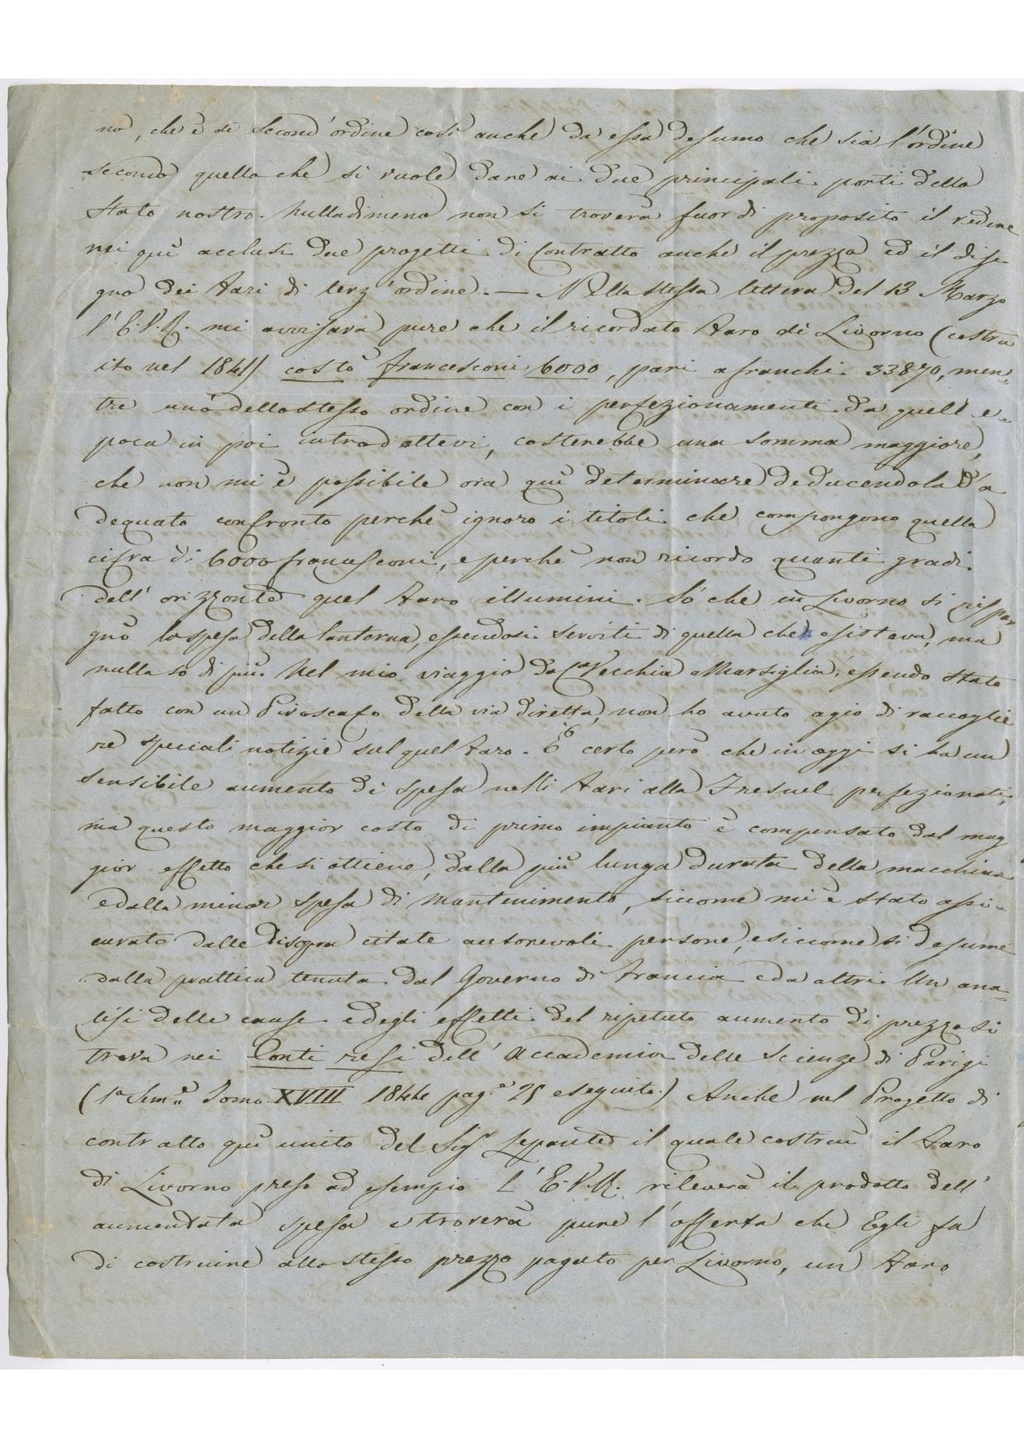 no, che è di second'ordine così anche da essa desumo che sia l'ordine
secondo quello che si vuole dare ai due principali porti dello
Stato nostro. Nulladimeno non si troverà fuor di proposito il vedere
nei quì acclusi due progetti di Contratto anche il prezzo ed il dise
gno dei Fari di terz'ordine. — Nella stessa lettera del 13 Marzo
l'E.V.R. mi avvisava pure che il ricordato Faro di Livorno (costru
ito nel 1841) costò francesconi 6000, pari a franchi 33870, men,
tre uno dello stesso ordine con i perfezionamenti da quell'e-
poca in poi introdottevi, costerebbe una somma maggiore,
che non mi è possibile ora quì determinare deducendola d'a
dequato confronto perchè ignoro i titoli che compongono quella
cifra di 6000 francesconi, e perchè non ricordo quanti gradi
dell'orizzonte quel Faro illumini. Só che in Livorno si rispar
gnò la spesa della lanterna, essendosi serviti di quella che esisteva, ma
nulla so di più. Nel mio viaggio da C.Vecchia a Marsiglia, essendo stato
fatto con un Piroscafo della via diretta, non ho avuto agio di raccoglie
re speciali notizie sul quel Faro. È certo però che in oggi si ha un
sensibile aumento di spesa nelli Fari alla Fresnel perfezionati,
ma questo maggior costo di primo impianto è compensato dal mag
gior effetto che si ottiene, dalla più lunga durata della macchina
e dalla minor spesa di mantenimento, siccome mi è stato assi-
curato dalle disopra citate autorevoli persone, e siccome si desume
dalla prattica tenuta dal Governo di Francia e da altri. Un ana-
lisi delle cause e degli effetti del ripetuto aumento di prezzo si
trova nei Conti resi dell'Accademia delle Scienze di Parigi
(1° Sem.e Tomo XVIII 1844 pag.e 25 e seguito.) Anche nel Progetto di
contratto quì unito del Sig.r Lepaute il quale costruì il Faro
di Livorno preso ad esempio l'E.V.R. rileverà il prodotto dell'
aumentata spesa e troverà pure l'offerta che Egli fa
di costruire allo stesso prezzo pagato per Livorno, un Faro